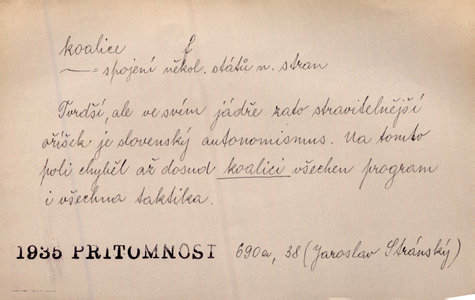 koalice f
— = spojení někol. států n. stran
Tvrdší, ale ve svém jádře zato stravitelnější
oříšek je slovenský autonomismus. Na tomto
poli chyběl až dosud koalici všechen program
i všechna taktika.
1935 PRITOMNOST 690a, 38 (Jaroslav Stránský)